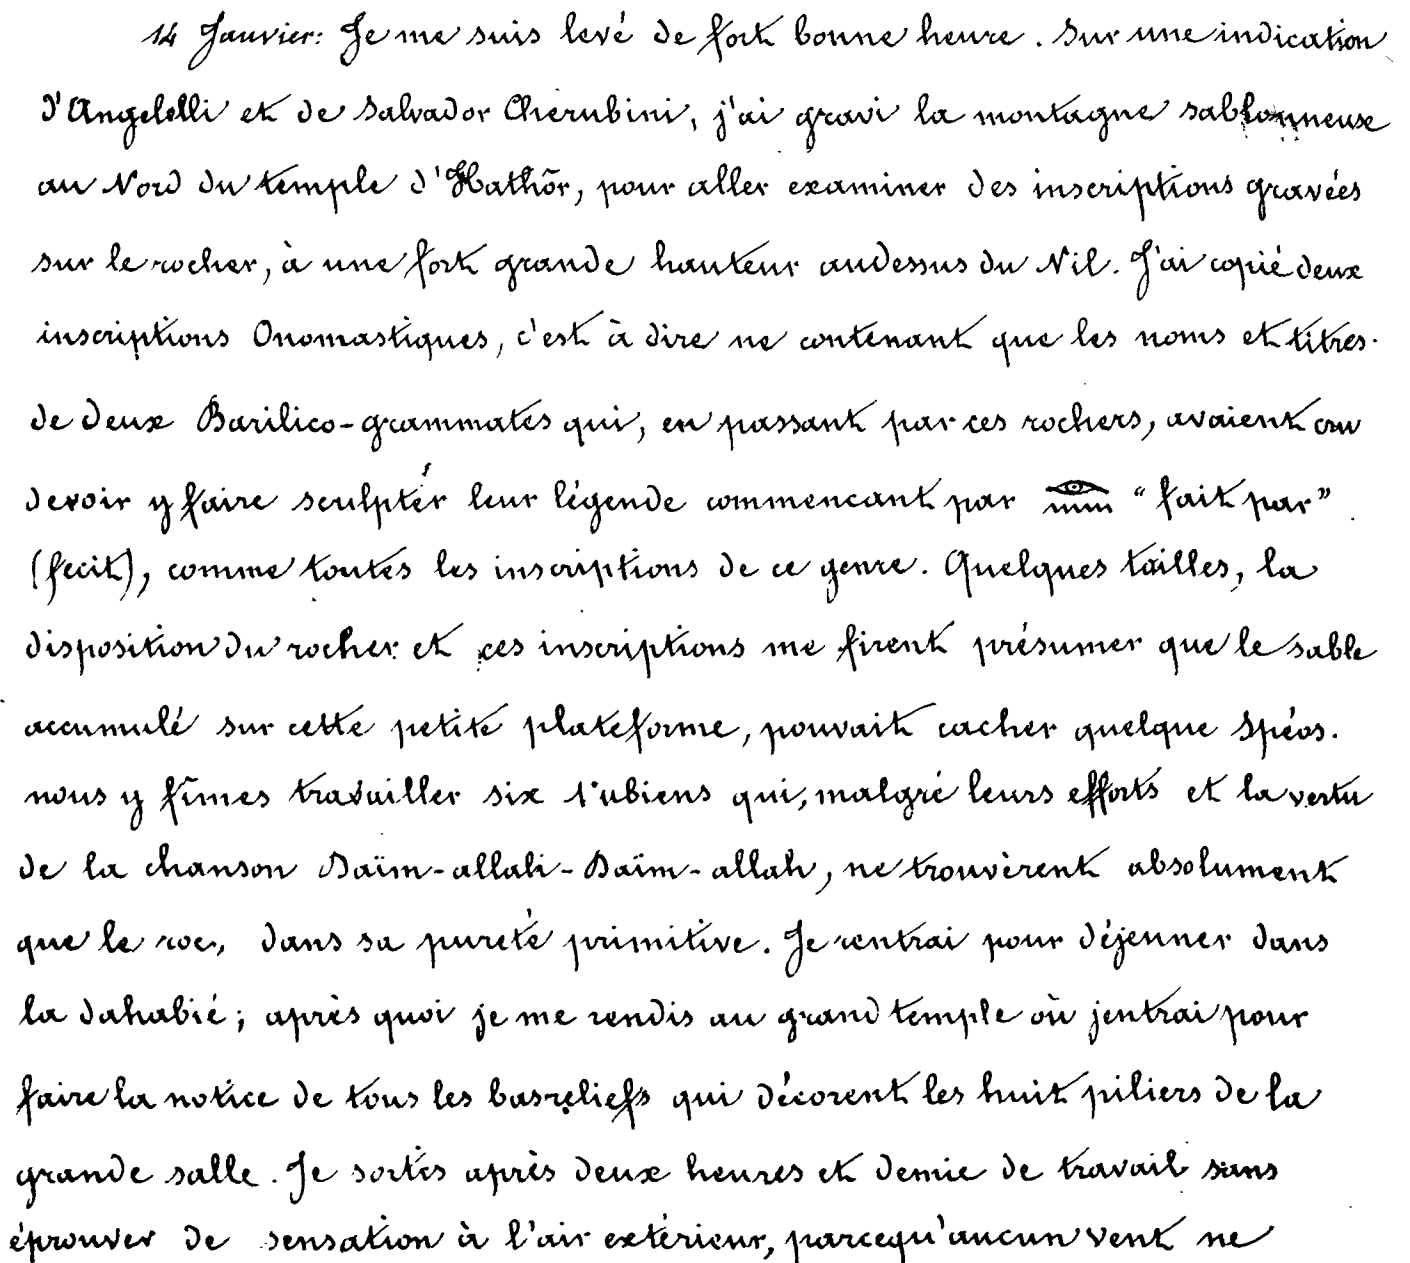 14 Janvier: Je me suis levé de fort bonne heure. Sur une indication
d'Angelelli et de Salvador Cherubini, j'ai gravi la montagne sablonneuse
au Nord du temple d'Hathôr, pour aller examiner des inscriptions gravées
sur le rocher, à une fort grande hauteur audessus du Nil. J'ai copié deux
inscriptions Onomastiques, c'est à dire ne contenant que les noms et titres
de deux Barilico-grammates qui, en passant par ces rochers, avaient cru
devoir y faire sculptér leur légende commencant par 𓁹𓈖 “fait par”
(fecit), comme toutes les inscriptions de ce genre. Quelques tailles, la
disposition du rocher et ces inscriptions me firent présumer que le sable
accumulé sur cette petite plateforme, pouvait cacher quelque Spéos.
nous y fîmes travailler six Nubiens qui, malgré leurs efforts et la vertu
de la chanson Daïm-allah-Daïm-allah, ne trouvèrent absolument
que le roc, dans sa pureté primitive. Je rentrai pour déjeuner dans
la dahabié; après quoi je me rendis au grand temple où jentrai pour
faire la notice de tous les basreliefs qui décorent les huit piliers de la
grande salle. Je sortis après deux heures et demie de travail sans
éprouver de sensation à l'air extérieur, parcequ'aucun vent ne